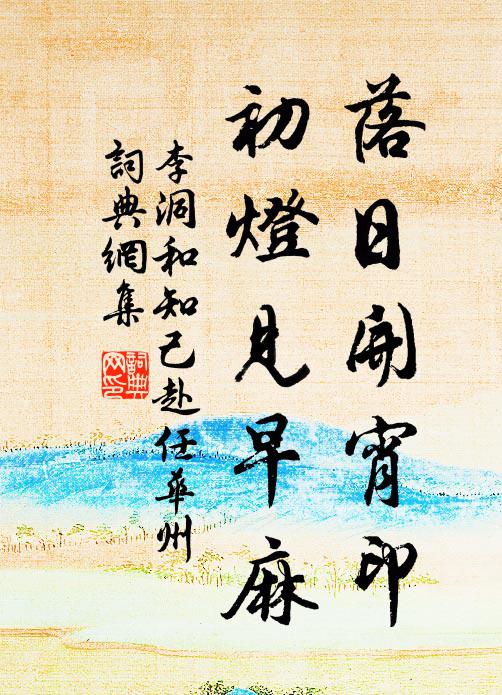 落日開宵印
初燈見早麻
李洞和知己赴任華州
詞典網集
詞典網印